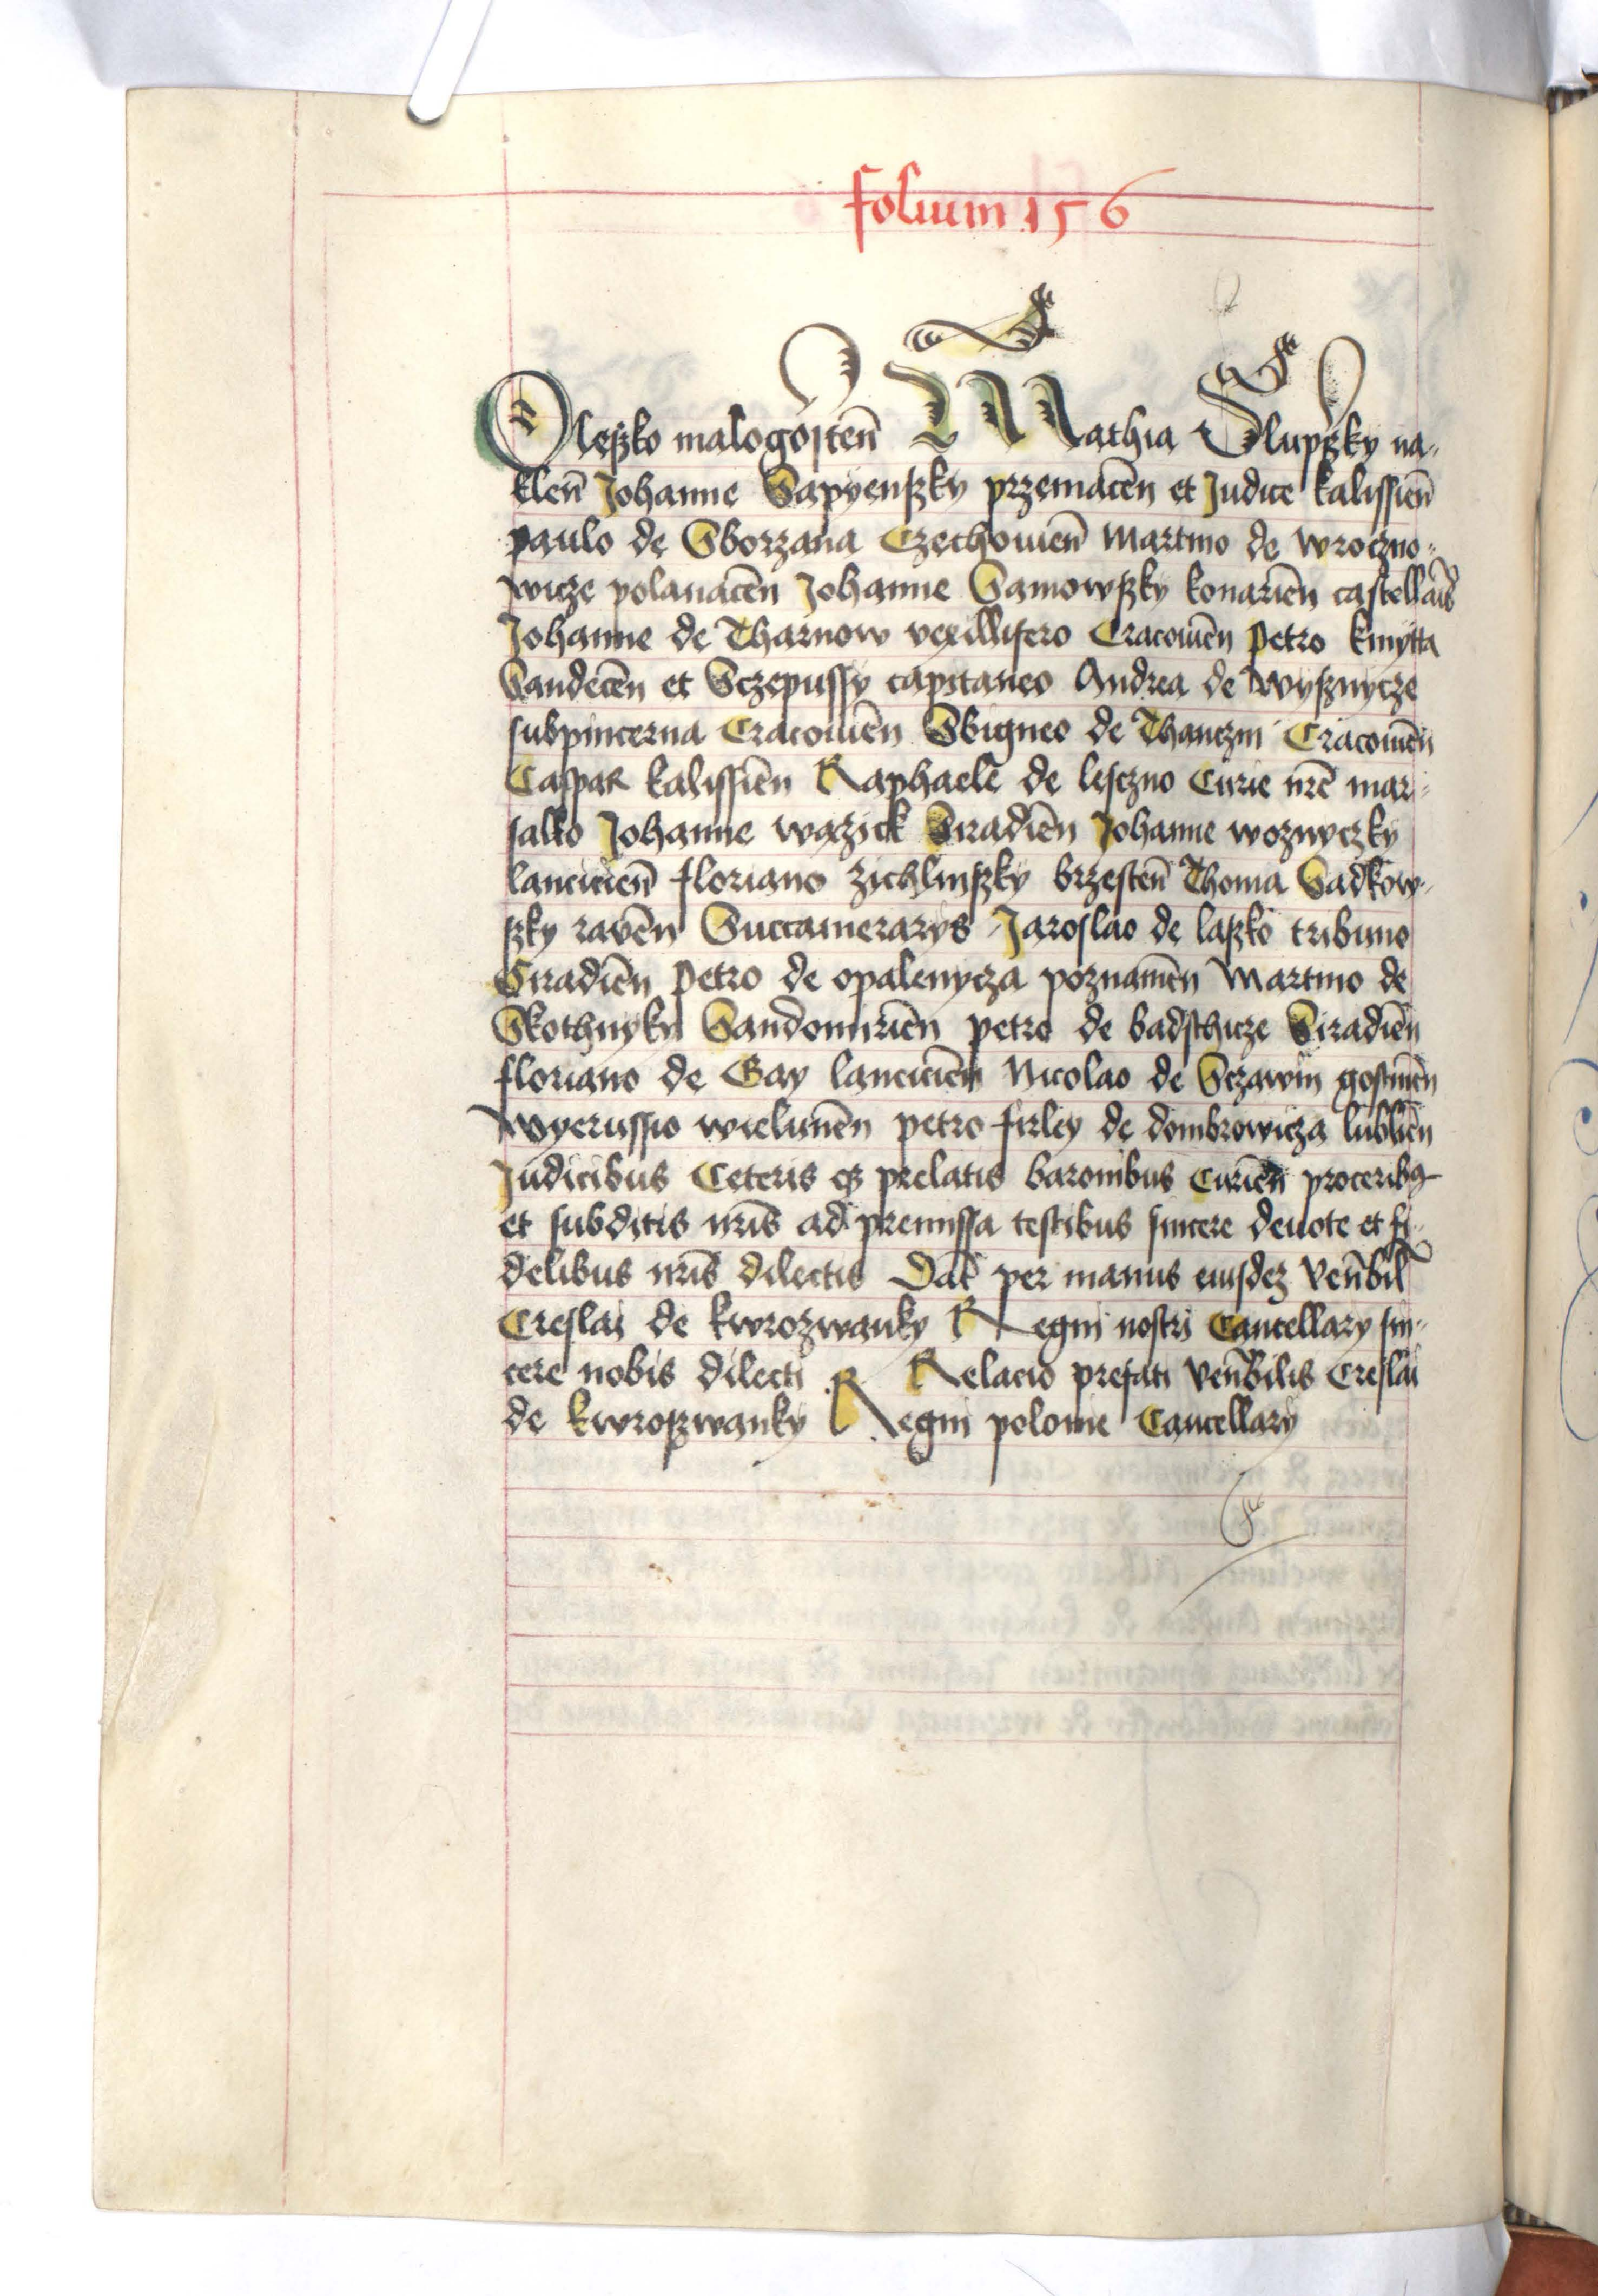 folium 156
Oleszko malogosteñ Mathia Slupszky na-
kleñ Johanne Sapyenszky przemäceñ et Judice kalissieñ
paulo de Sborzana Czechouieñ Martino de wroczno-
wicze polanaceñ Johanne Samowszky konarieñ castellañis
Johanne de Tharnow vexillifero Cracouieñ Petro kmytta
Sandeceñ et Sczepussy capitaneo Andrea de wysznycze
subpincerna Cracouieñ Sbigneo de Thanczin Cracouieñ
Caspar kalissieñ Raphaele de lesczno Curie nrẽ mar-
sallo Johanne wazick Siradieñ Johanne woznyczky
lancicieñ floriano zichlinszky brzesteñ Thoma Sadkow-
szky raveñ Succamerarys Jaroslao de laszko tribuno
Siradieñ Petro de opalenycza poznanieñ Martino de
Skothnyky Sandomirieñ petro de badschicze Siradieñ
floriano de Gay lancicieñ Nicolao de Sczawin gostineñ
wyerussio wieluneñ petro firley de dombrowicza lublieñ
Judicibus Ceteris qz prelatis baronibus Curieñ proceribꝯ
et subditis nris̃ ad premissa testibus sincere deuote et fi-
delibus nris̃ dilectis Dat̃ per manus eiusdez Veñbil̃
Creslai de kwrozwanky Regni nostri Cancellary sin-
cere nobis dilecti Relacio prefati Veñbilis Creslai
de kwroszwanky Regni polonie Cancellary